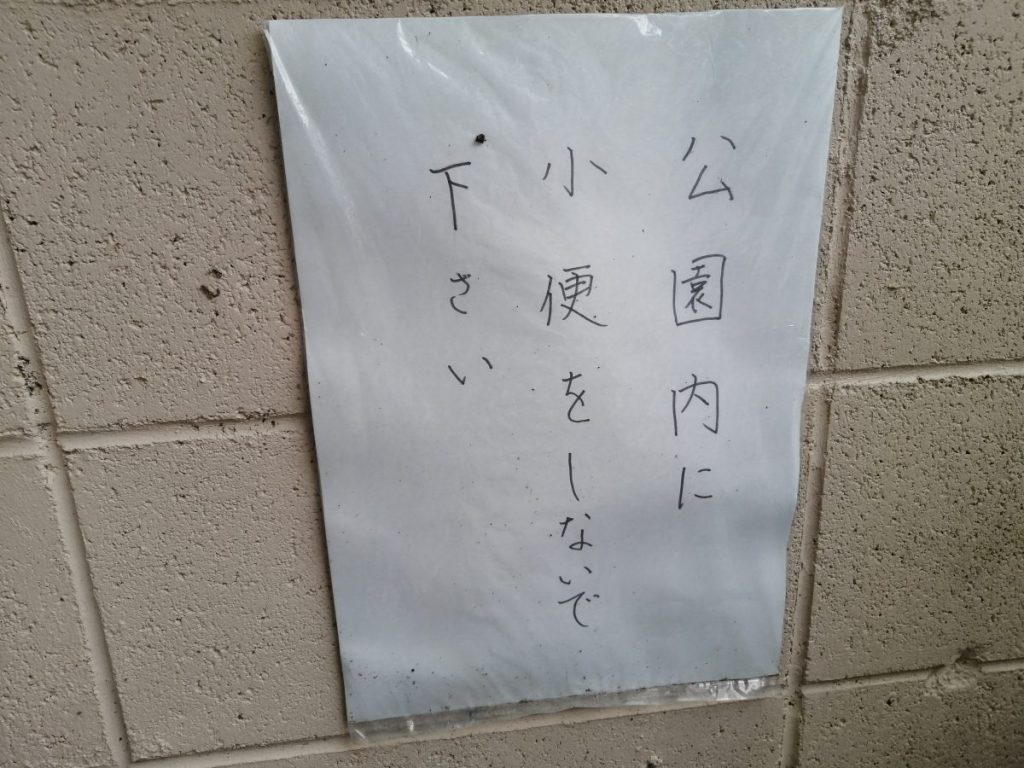 公園内に
小便をしないで
下さい